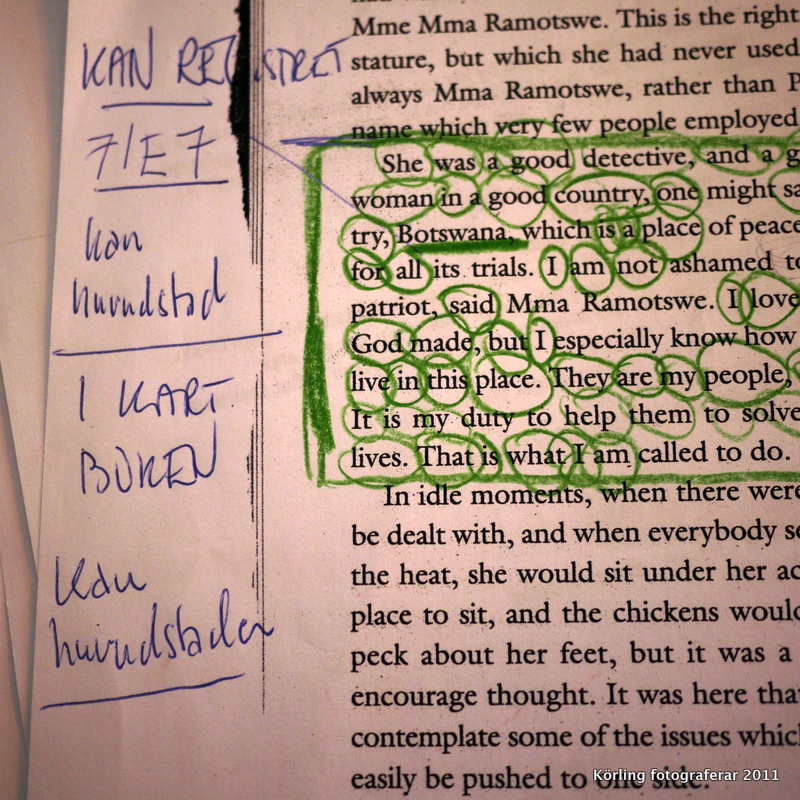 KAN REGISTRET
7/E7
kan
huvudstad
I KART
BOKEN
kan
huvudstaden
Mme Mma Ramotswe. This is the right
stature, but which she had never used
always Mma Ramotswe, rather than P
name which very few people employed
She was a good detective, and a g
woman in a good country, one might sa
try, Botswana, which is a place of peace
for all its trials. I am not ashamed to
patriot, said Mma Ramotswe. I love
God made, but I especially know how
live in this place. They are my people,
It is my duty to help them to solve
lives. That is what I am called to do.
In idle moments, when there were
be dealt with, and when everybody se
the heat, she would sit under her ac
place to sit, and the chickens would
peck about her feet, but it was a
encourage thought. It was here tha
contemplate some of the issues which
easily be pushed to one side.
Körling fotograferar 2011